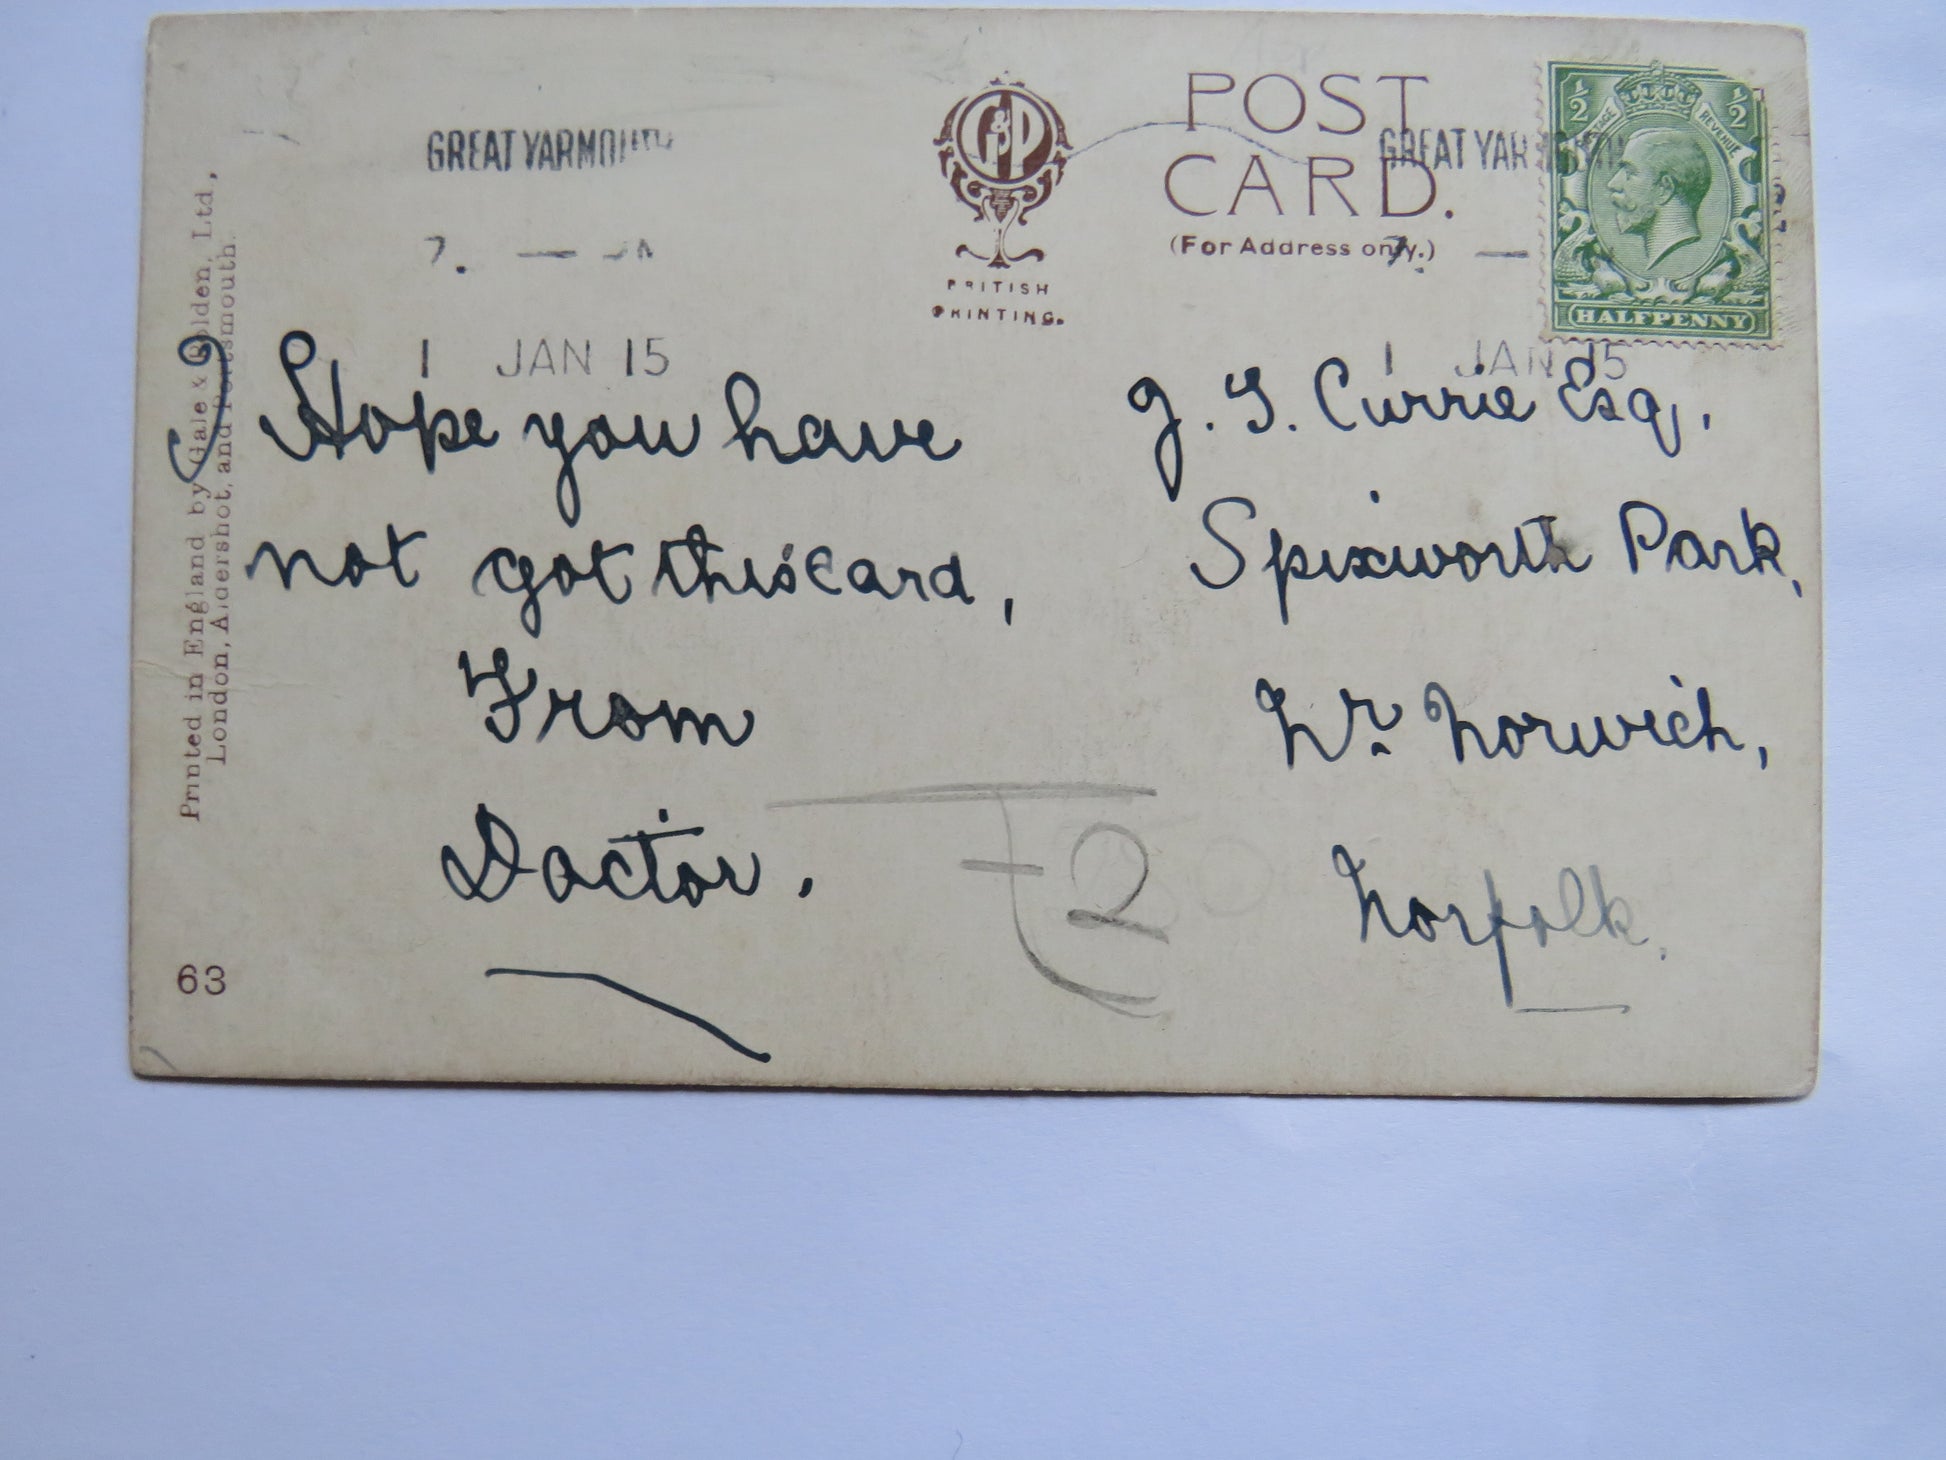 GREAT YARMOUTH
7. — AM
1 JAN 15
G&P
BRITISH
PRINTING.
POST
CARD.
(For Address only.)
GREAT YARMOUTH
7. —
1 JAN 15
1/2 POSTAGE REVENUE 1/2
HALFPENNY
Printed in England by Gale & Polden, Ltd.,
London, Aldershot, and Portsmouth.
I Hope you have
not got this card,
From
Doctor.
J. G. Currie Esq,
Spixworth Park,
Nr. Norwich,
Norfolk.
2
63